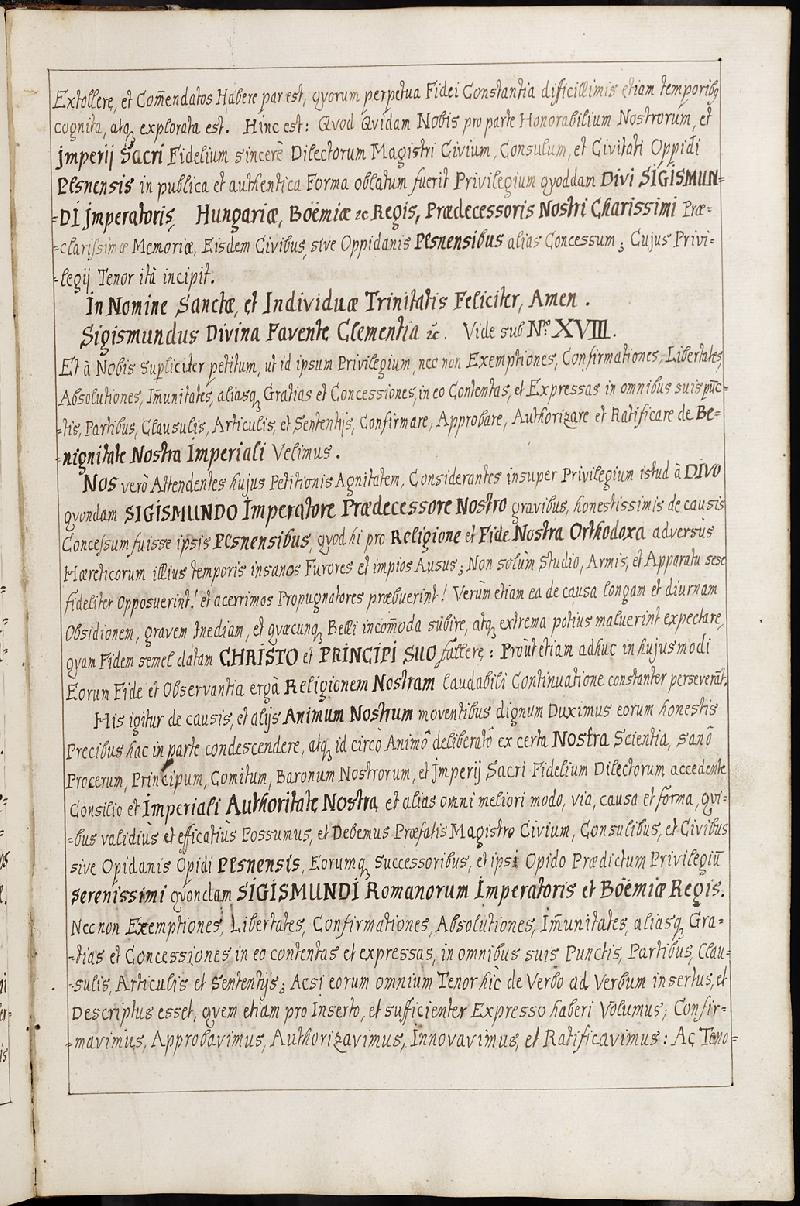 Extollere, et Com̄endatos Habere par est, qvorum perpetua Fidei Constantia difficillimis etiam temporibꝫ
cognita, atqꝫ explorata est. Hinc est: Qvod Qvidam Nobis pro parte Honorabilium Nostrorum, et
Jmperij Sacri Fidelium sincerè Dilectorum Magistri Civium, Consulum, et Civitati Oppidi
Plsnensis in publica et authentica Forma oblatum fuerit Privilegium qvoddam Divi SIGISMUN-
-DI Jmperatoris, Hungariæ, Boëmiæ ꝛc Regis, Prædecessoris Nostri Charissimi Præ=
-clarissimæ Memoriæ, Eisdem Civibus, sive Oppidanis Plsnensibus alias Concessum; Cujus Privi=
-legij Tenor ità incipit.
In Nomine Sanctæ, et Individuæ Trinitatis Feliciter, Amen.
Sigismundus Divina Favente Clementia ꝛc. Vide sub Nro XVIII.
Et à Nobis supliciter petitum, ut id ipsum Privilegium, nec non Exemptiones, Confirmationes, Libertates,
Absolutiones, Im̄unitates, aliasqꝫ Gratias et Concessiones, in eo Contentas, et Expressas in omnibus suis pūc=
-tis, Partibus, Clausulis, Articulis, et Sententijs, Confirmare, Approbare, Authorizare et Ratificare de Be=
-nignitate Nostra Imperiali Velimus.
Nos verò Attendentes hujus Petitionis Aqvitatem, Considerantes insuper Privilegium istud à DIVO
qvondam SIGISMUNDO Imperatore Prædecessore Nostro gravibus, honestissimis de causis
Concessum fuisse ipsis Plsnensibus, qvod hi pro Religione et Fide Nostra Orthodoxa adversus
Hæreticorum illius temporis insanos Furores et impios Ausus; Non solùm Studio, Armis, et Apparatu sese
fideliter Opposuerint! et acerrimos Propugnatores præbuerint! Verùm etiam ea de causa longam et diurnam
Obsidionem, gravem Inediam, et qvæcunqꝫ Belli incom̄oda subire, atqꝫ extrema potius maluerint expectare,
qvam Fidem semel datam CHRISTO et PRINCIPI SUO fallere: Proùt etiam adhuc in hujusmodi
Eorum Fide et Observantia ergà Religionem Nostram laudabili Continuatione constanter perseverāt.
His igitur de causis, et alijs Animum Nostrum moventibus dignum Duximus eorum honestis
Precibus hac in parte condescendere, atqꝫ id circò Animô deliberatô ex certa Nostra Scientia, sanô
Procerum, Principum, Comitum, Baronum Nostrorum, et Jmperij Sacri Fidelium Dilectorum accedente
Consilio et Imperiali Authoritate Nostra, et alias omni meliori modo, via, causa et forma, qvi=
-bus validiùs et efficatiùs Possumus, et Debemus Præfatis Magistro Civium, Consulibus, et Civibus
sive Opidanis Opidi Plsnensis, Eorumqꝫ Successoribus, et ipsi Opido Prædictum Privilegiū
serenissimi qvondam SIGISMUNDI Romanorum Imperatoris et Boëmiæ Regis.
Nec non Exemptiones, Libertates, Confirmationes, Absolutiones, Im̄unitates, aliasqꝫ Gra=
-tias et Concessiones in eo contentas et expressas, in omnibus suis Punctis, Partibus, Clau=
-sulis, Articulis et Sententijs; Acsi eorum omnium Tenor hìc de Verbo ad Verbum insertus, et
Descriptus esset, qvem etiam pro Inserto, et sufficienter Expresso haberi Volumus, Confir=
-mavimus, Approbavimus, Authorizavimus, Innovavimus, et Ratificavimus: Ac Teno=